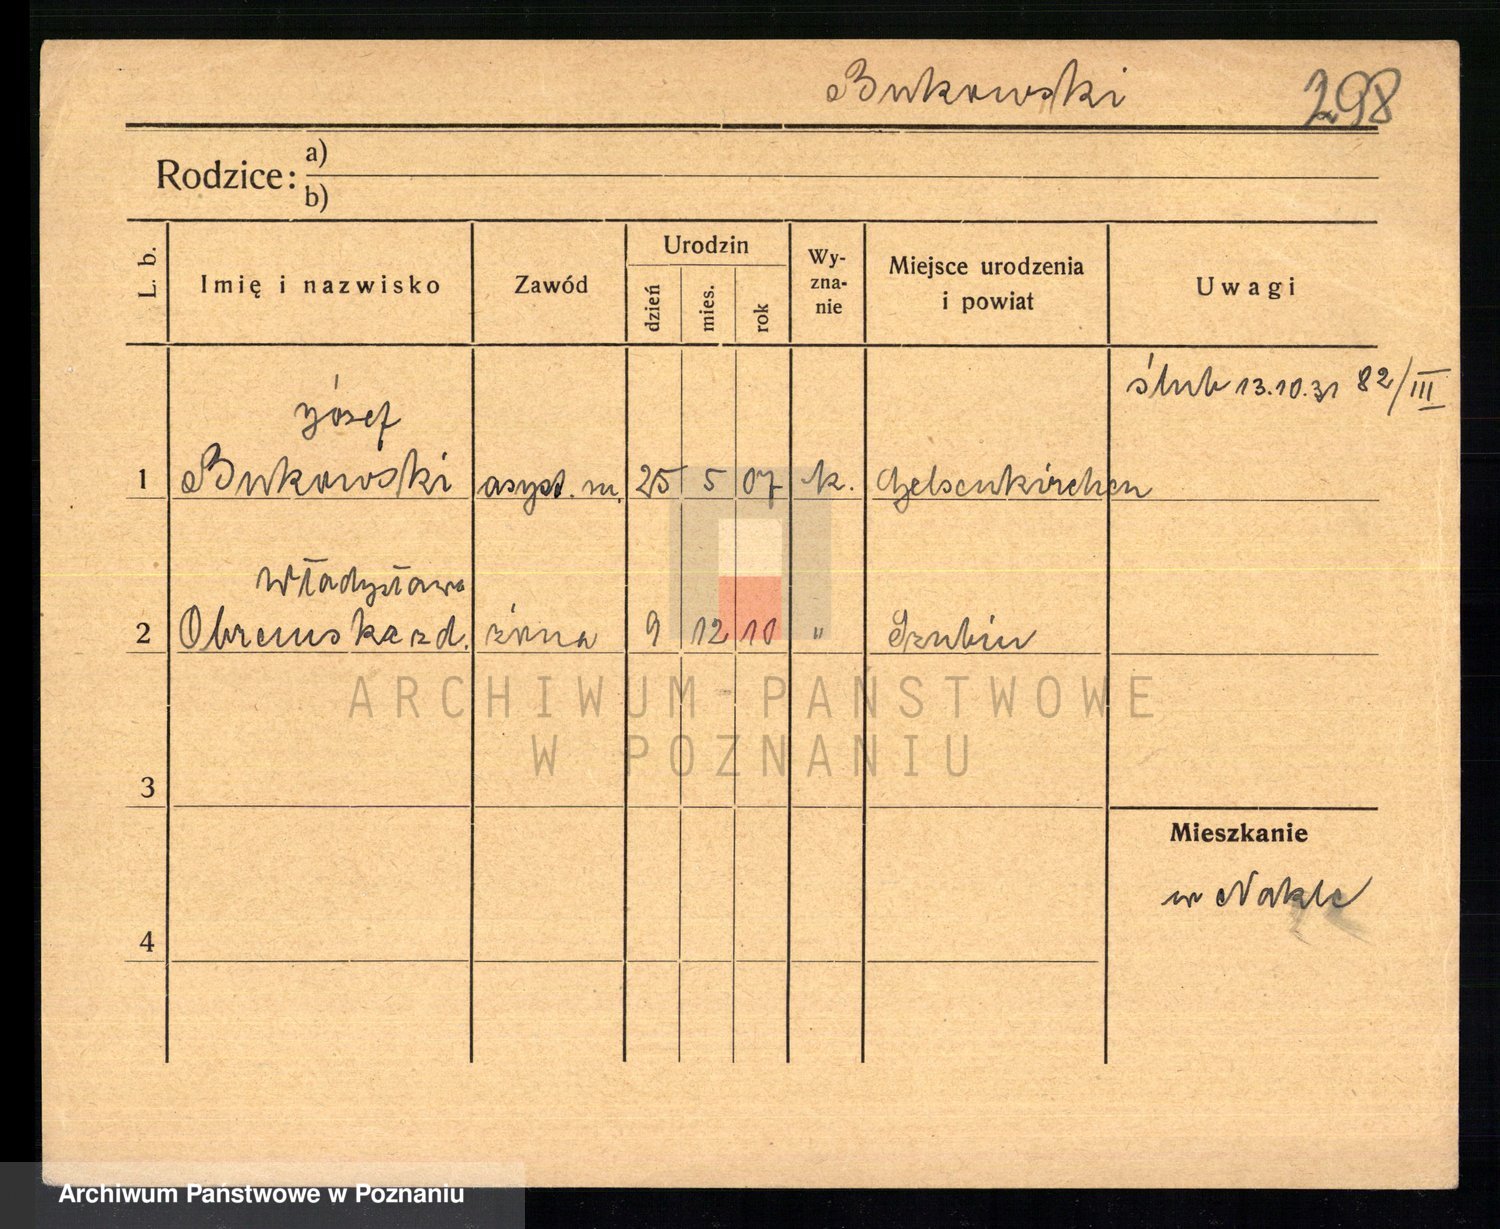 Bukowski 298
Rodzice: a)
b)
L. b.
Imię i nazwisko
Zawód
Urodzin
dzień
mies.
rok
Wy-
zna-
nie
Miejsce urodzenia
i powiat
Uwagi
ślub 13.10.31 82/III
Józef
1 Bukowski asyst. m. 25 5 07 k. Gelsenkirchen
Władysława
2 zd. żona 9 12 10 " Szubin
3
4
Mieszkanie
w Nakle
ARCHIWUM PAŃSTWOWE
W POZNANIU
Archiwum Państwowe w Poznaniu